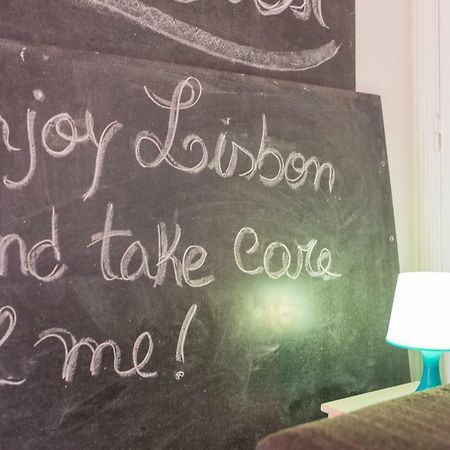 njoy Lisbon
nd take care
f me!